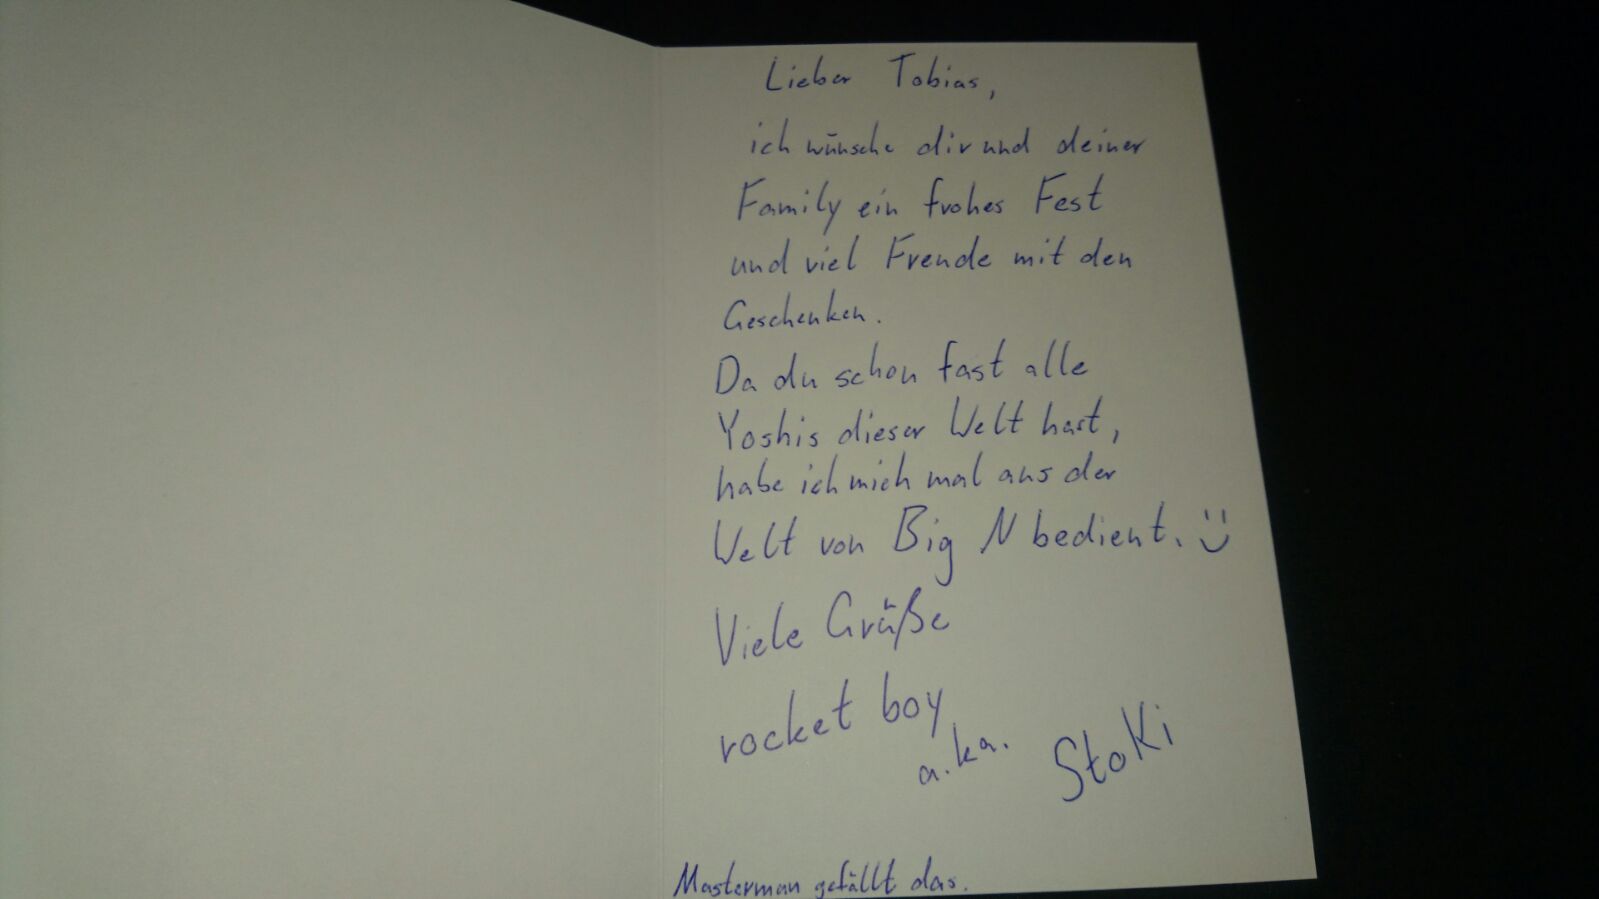 Lieber Tobias,
ich wünsche dir und deiner
Family ein frohes Fest
und viel Freude mit den
Geschenken.
Da du schon fast alle
Yoshis dieser Welt hast,
habe ich mich mal aus der
Welt von Big N bedient. :)
Viele Grüße
rocket boy
a.k.a. StoKi
Masterman gefällt das.